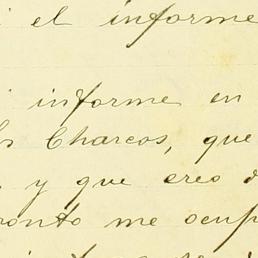 i el informe
i informe en
los Charcos, que
y que creo d
ronto me ocup